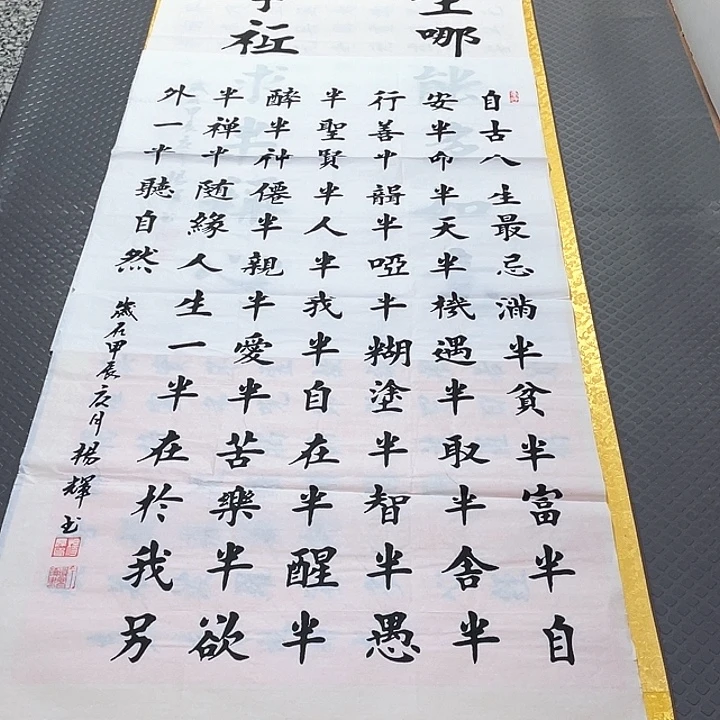 哪
自古人生最忌滿半貧半富半自
安半命半天半機遇半取半舍半
行善半半啞半糊塗半智半愚
半聖賢半人半我半自在半醒半
醉半神僊半親半愛半苦樂半欲
半禪半随緣人生一半在於我另
外一半聽自然
歲在甲辰月楊輝书